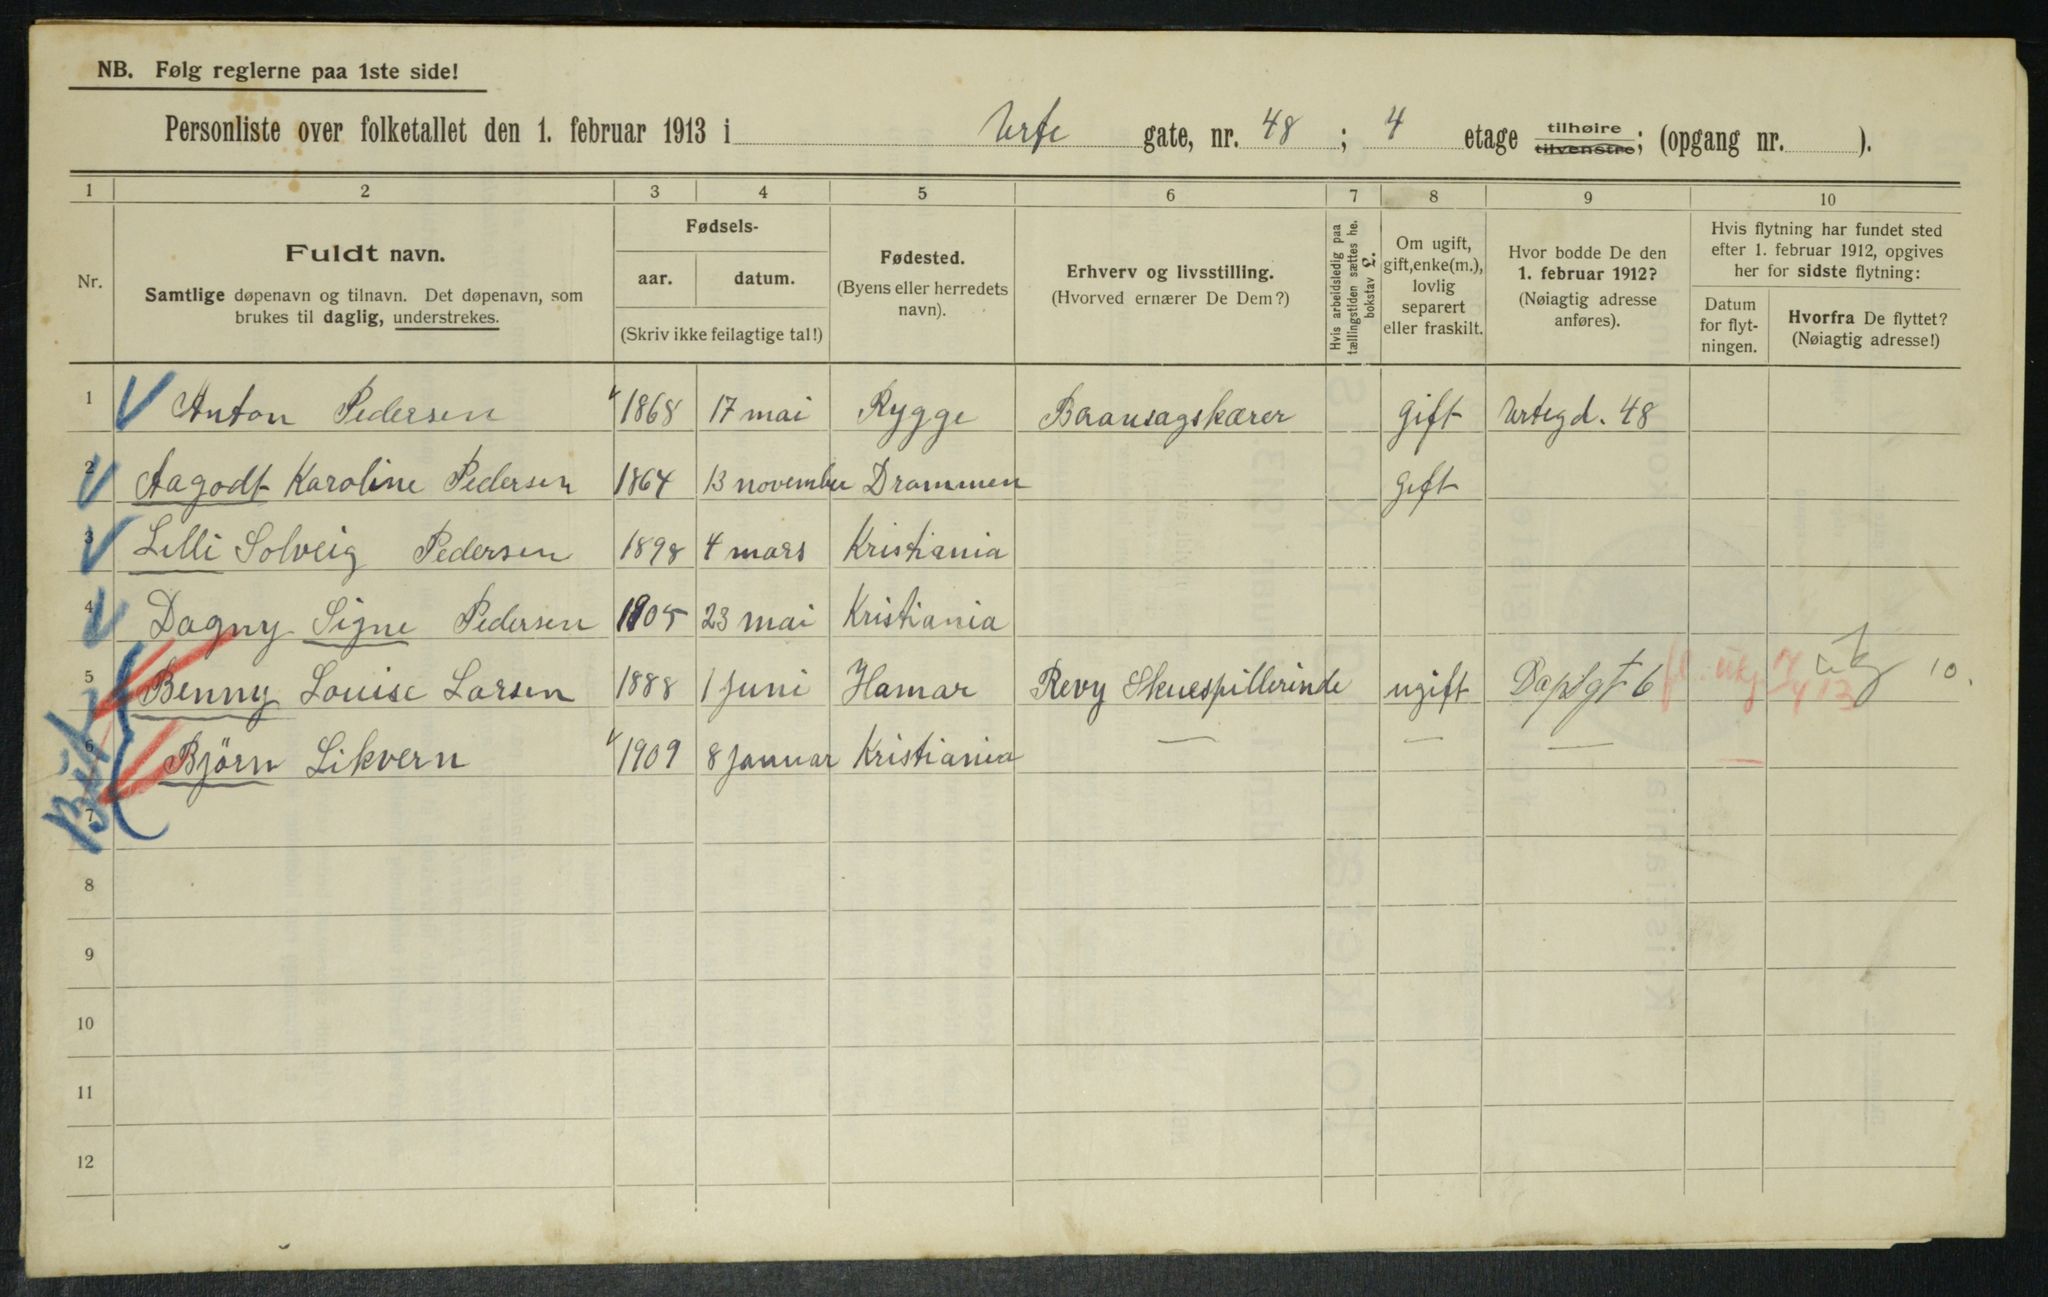 NB. Følg reglerne paa 1ste side!
Personliste over folketallet den 1. februar 1913 i Urte gate, nr. 48 ; 4 etage tilhøire tilvenstre; (opgang nr. ).
1 2 3 4 5 6 7 8 9 10
Nr.
Fuldt navn.
Samtlige døpenavn og tilnavn. Det døpenavn, som
brukes til daglig, understrekes.
Fødsels-
aar. datum.
(Skriv ikke feilagtige tal!)
Fødested.
(Byens eller herredets
navn).
Erhverv og livsstilling.
(Hvorved ernærer De Dem?)
Hvis arbeidsledig paa
tællingstiden sættes he.
bokstav L.
Om ugift,
gift, enke(m.),
lovlig
separert
eller fraskilt.
Hvor bodde De den
1. februar 1912?
(Nøiagtig adresse
anføres).
Hvis flytning har fundet sted
efter 1. februar 1912, opgives
her for sidste flytning:
Datum
for flyt-
ningen.
Hvorfra De flyttet?
(Nøiagtig adresse!)
1 Anton Pedersen 1868 17 mai Rygge Baansagskærer gift Urtegd. 48
2 Aagodt Karoline Pedersen 1864 13 november Drammen gift
3 Lilli Solveig Pedersen 1898 4 mars Kristiania
4 Dagny Signe Pedersen 1905 23 mai Kristiania
5 Benny Louise Larsen 1888 1 Juni Hamar Revy Skuespillerinde ugift 6 10.
6 Bjørn Likvern 1909 8 Januar Kristiania — — —
7
8
9
10
11
12